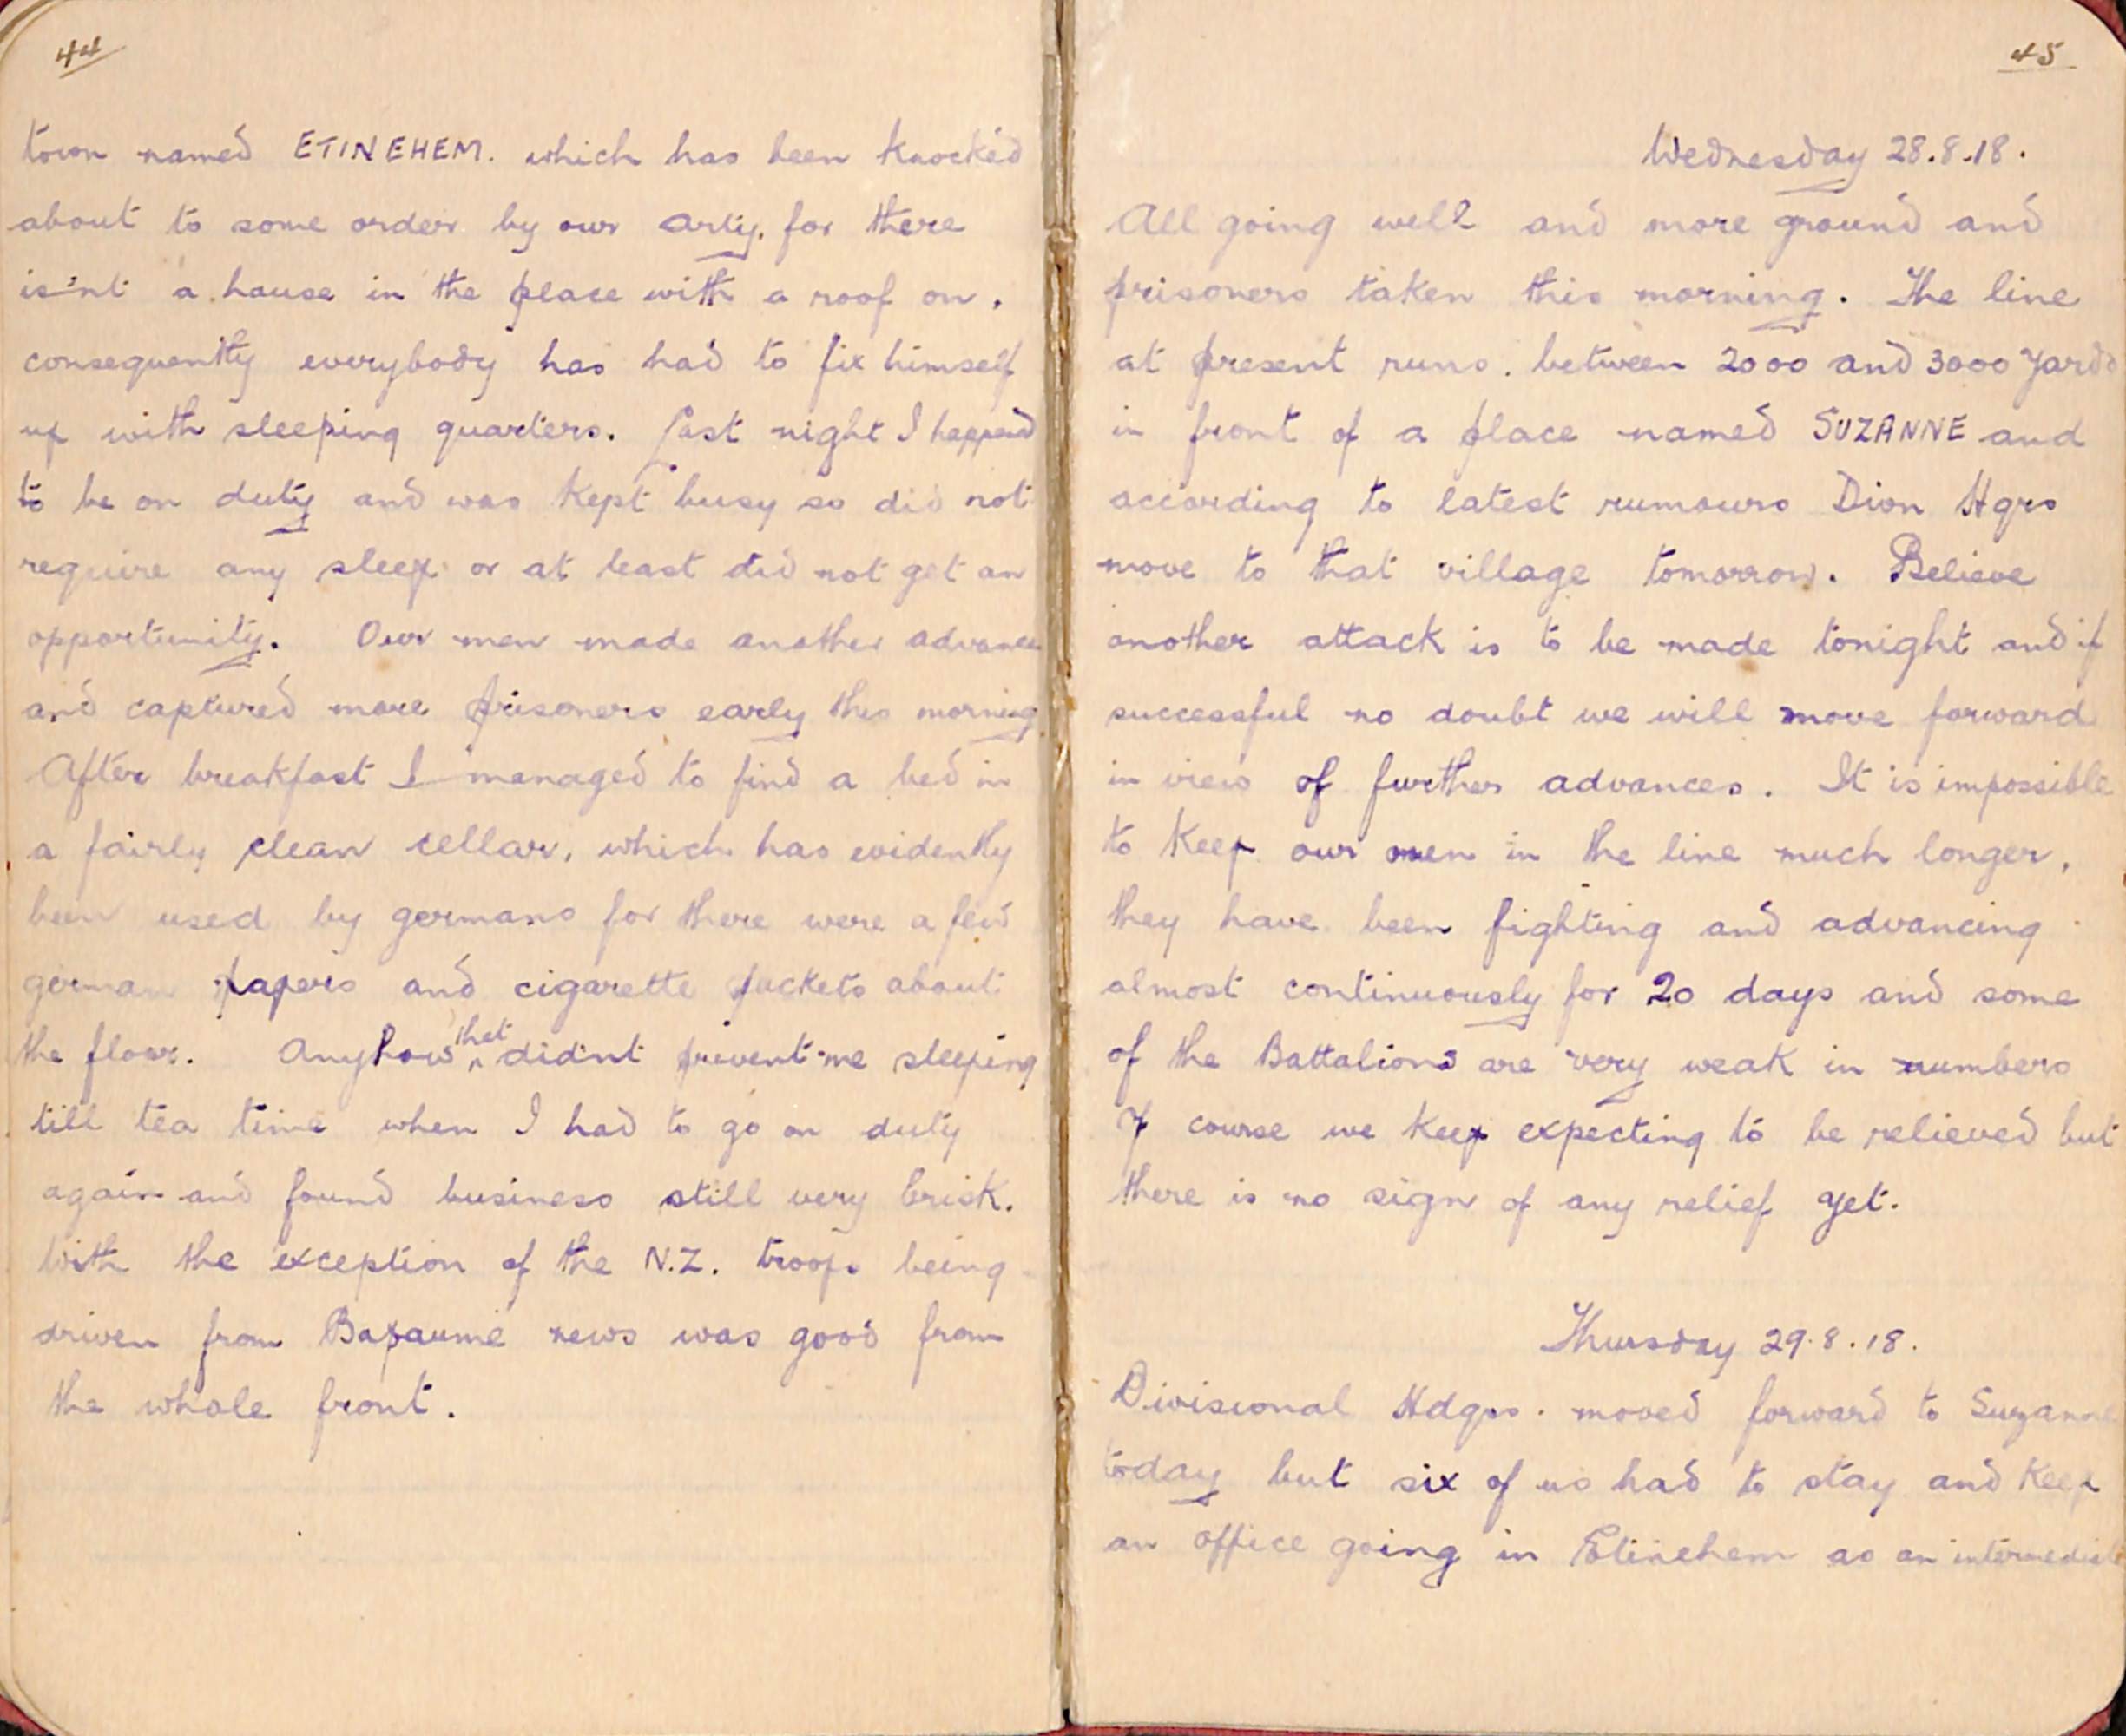 44
town named ETINEHEM. which has been knocked
about to some order by our arty. for there
is'nt a house in the place with a roof on.
consequently everybody has had to fix himself
up with sleeping quarters. Last night I happened
to be on duty and was kept busy so did not
require any sleep or at least did not get an
opportunity. Our men made another advance
and captured more prisoners early this morning
After breakfast I managed to find a bed in
a fairly clean cellar, which has evidently
been used by germans for there were a few
german papers and cigarette packets about
the floor. Anyhow that didn't prevent me sleeping
till tea time when I had to go on duty
again and found business still very brisk.
With the exception of the N.Z. troops being
driven from Bapaume news was good from
the whole front.
45
Wednesday 28.8.18.
All going well and more ground and
prisoners taken this morning. The line
at present runs. between 2000 and 3000 yards
in front of a place named SUZANNE and
according to latest rumours Dion Hqrs
move to that village tomorrow. Believe
another attack is to be made tonight and if
successful no doubt we will move forward
in view of further advances. It is impossible
to keep our men in the line much longer,
they have been fighting and advancing
almost continuously for 20 days and some
of the Battalions are very weak in numbers
Of course we keep expecting to be relieved but
there is no sign of any relief yet.
Thursday 29.8.18.
Divisional Hdqrs. moved forward to Suzanne
today but six of us had to stay and keep
an office going in Etinehem as an intermediate